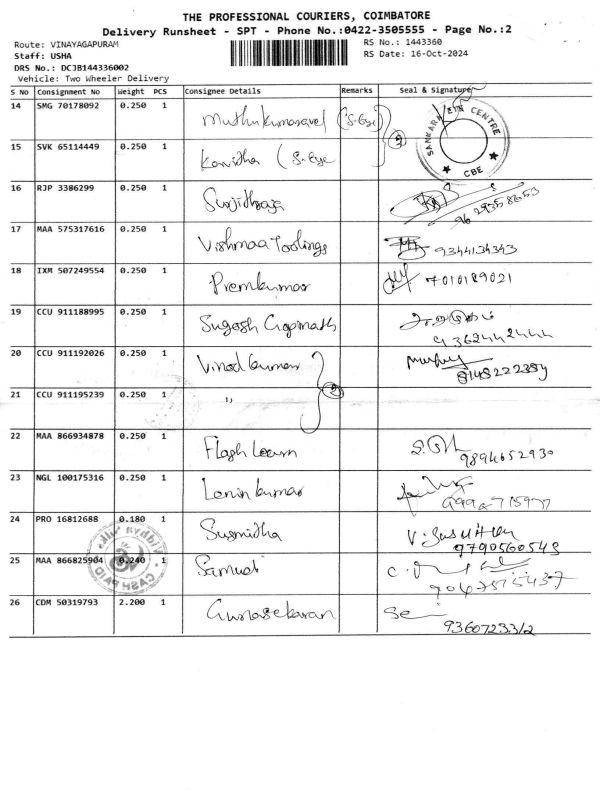 THE PROFESSIONAL COURIERS, COIMBATORE
Delivery Runsheet - SPT - Phone No.:0422-3505555 - Page No.:2
Route: VINAYAGAPURAM RS No.: 1443360
Staff: USHA RS Date: 16-Oct-2024
DRS No.: DCJB144336002
Vehicle: Two Wheeler Delivery
S No Consignment No Weight PCS Consignee Details Remarks Seal & Signature
14 SMG 70178092 0.250 1 Muthukumaravel (S-Eye) SANKARA EYE CENTRE CBE
15 SVK 65114449 0.250 1 Kavidha (S-Eye 2
16 RJP 3386299 0.250 1 Surjithraja 9629358653
17 MAA 575317616 0.250 1 Vishmaa Toolings 9344134343
18 IXM 507249554 0.250 1 Premkumar 7010189021
19 CCU 911188995 0.250 1 Sugash Gopinath 9362442444
20 CCU 911192026 0.250 1 Vinod kumar 8148222389
21 CCU 911195239 0.250 1 " 2
22 MAA 866934878 0.250 1 Flash Learn 9894652930
23 NGL 100175316 0.250 1 Lenin kumar
24 PRO 16812688 0.180 1 Susmidha 9790560543
25 MAA 866825904 0.240 1 Samuel
CASH PAID
26 CDM 50319793 2.200 1 Gunasekaran